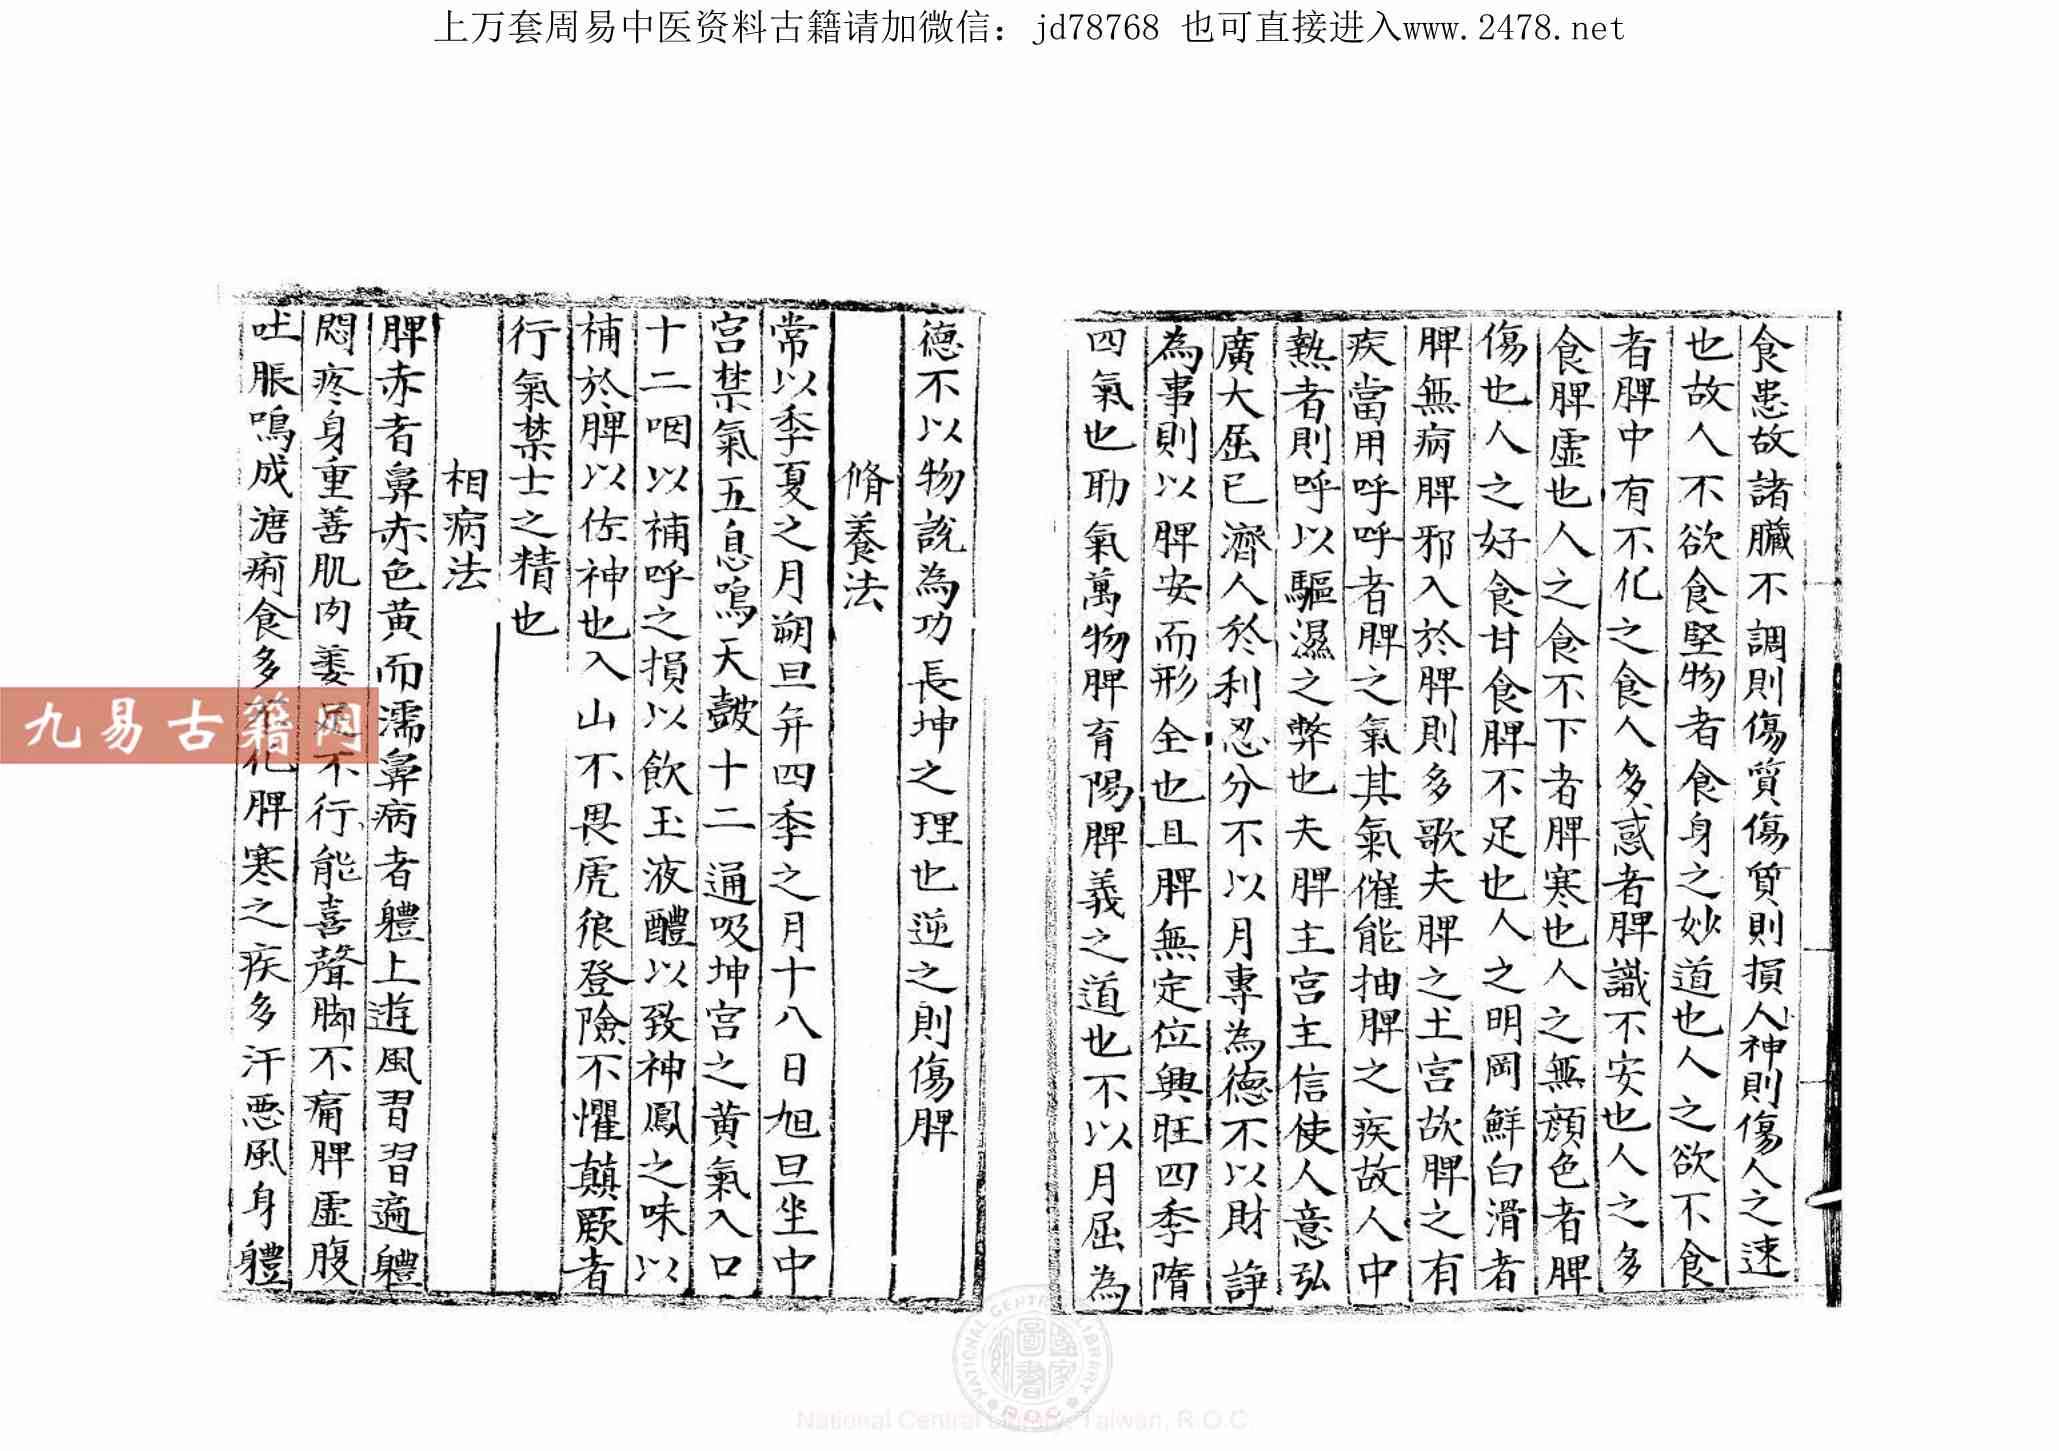 上万套周易中医资料古籍请加微信：jd78768 也可直接进入www.2478.net
食患故諸臟不調則傷質傷質則損人神則傷人之速
也故人不欲食堅物者食身之妙道也人之欲不食
者脾中有不化之食人多惑者脾識不安也人之多
食脾虛也人之食不下者脾寒也人之無顔色者脾
傷也人之好食甘食脾不足也人之明岡鮮白滑者
脾無病脾邪入於脾則多歌夫脾之土宮故脾之有
疾當用呼呼者脾之氣其氣催能抽脾之疾故人中
熱者則呼以驅濕之弊也夫脾主宮主信使人意弘
廣大屈已濟人於利忍分不以月專為德不以財諍
為事則以脾安而形全也且脾無定位興旺四季隋
四氣也助氣萬物脾育陽脾義之道也不以月屈為
德不以物說為功長坤之理也逆之則傷脾
脩養法
常以季夏之月朔旦并四季之月十八日旭旦坐中
宮禁氣五息鳴天皷十二通吸坤宮之黄氣入口
十二咽以補呼之損以飲玉液醴以致神鳳之味以
補於脾以佐神也入山不畏虎狼登險不懼顛厥者
行氣禁士之精也
相病法
脾赤者鼻赤色黄而濡鼻病者軆上遊風習習遍軆
悶疼身重善肌肉萎足不行能喜聲脚不痛脾虛腹
吐脹鳴成溏痢食多不化脾寒之疾多汗惡風身軆
九易古籍网
NATIONAL CENTRAL LIBRARY
R.O.C
國家圖書館
National Central Library, Taiwan, R.O.C